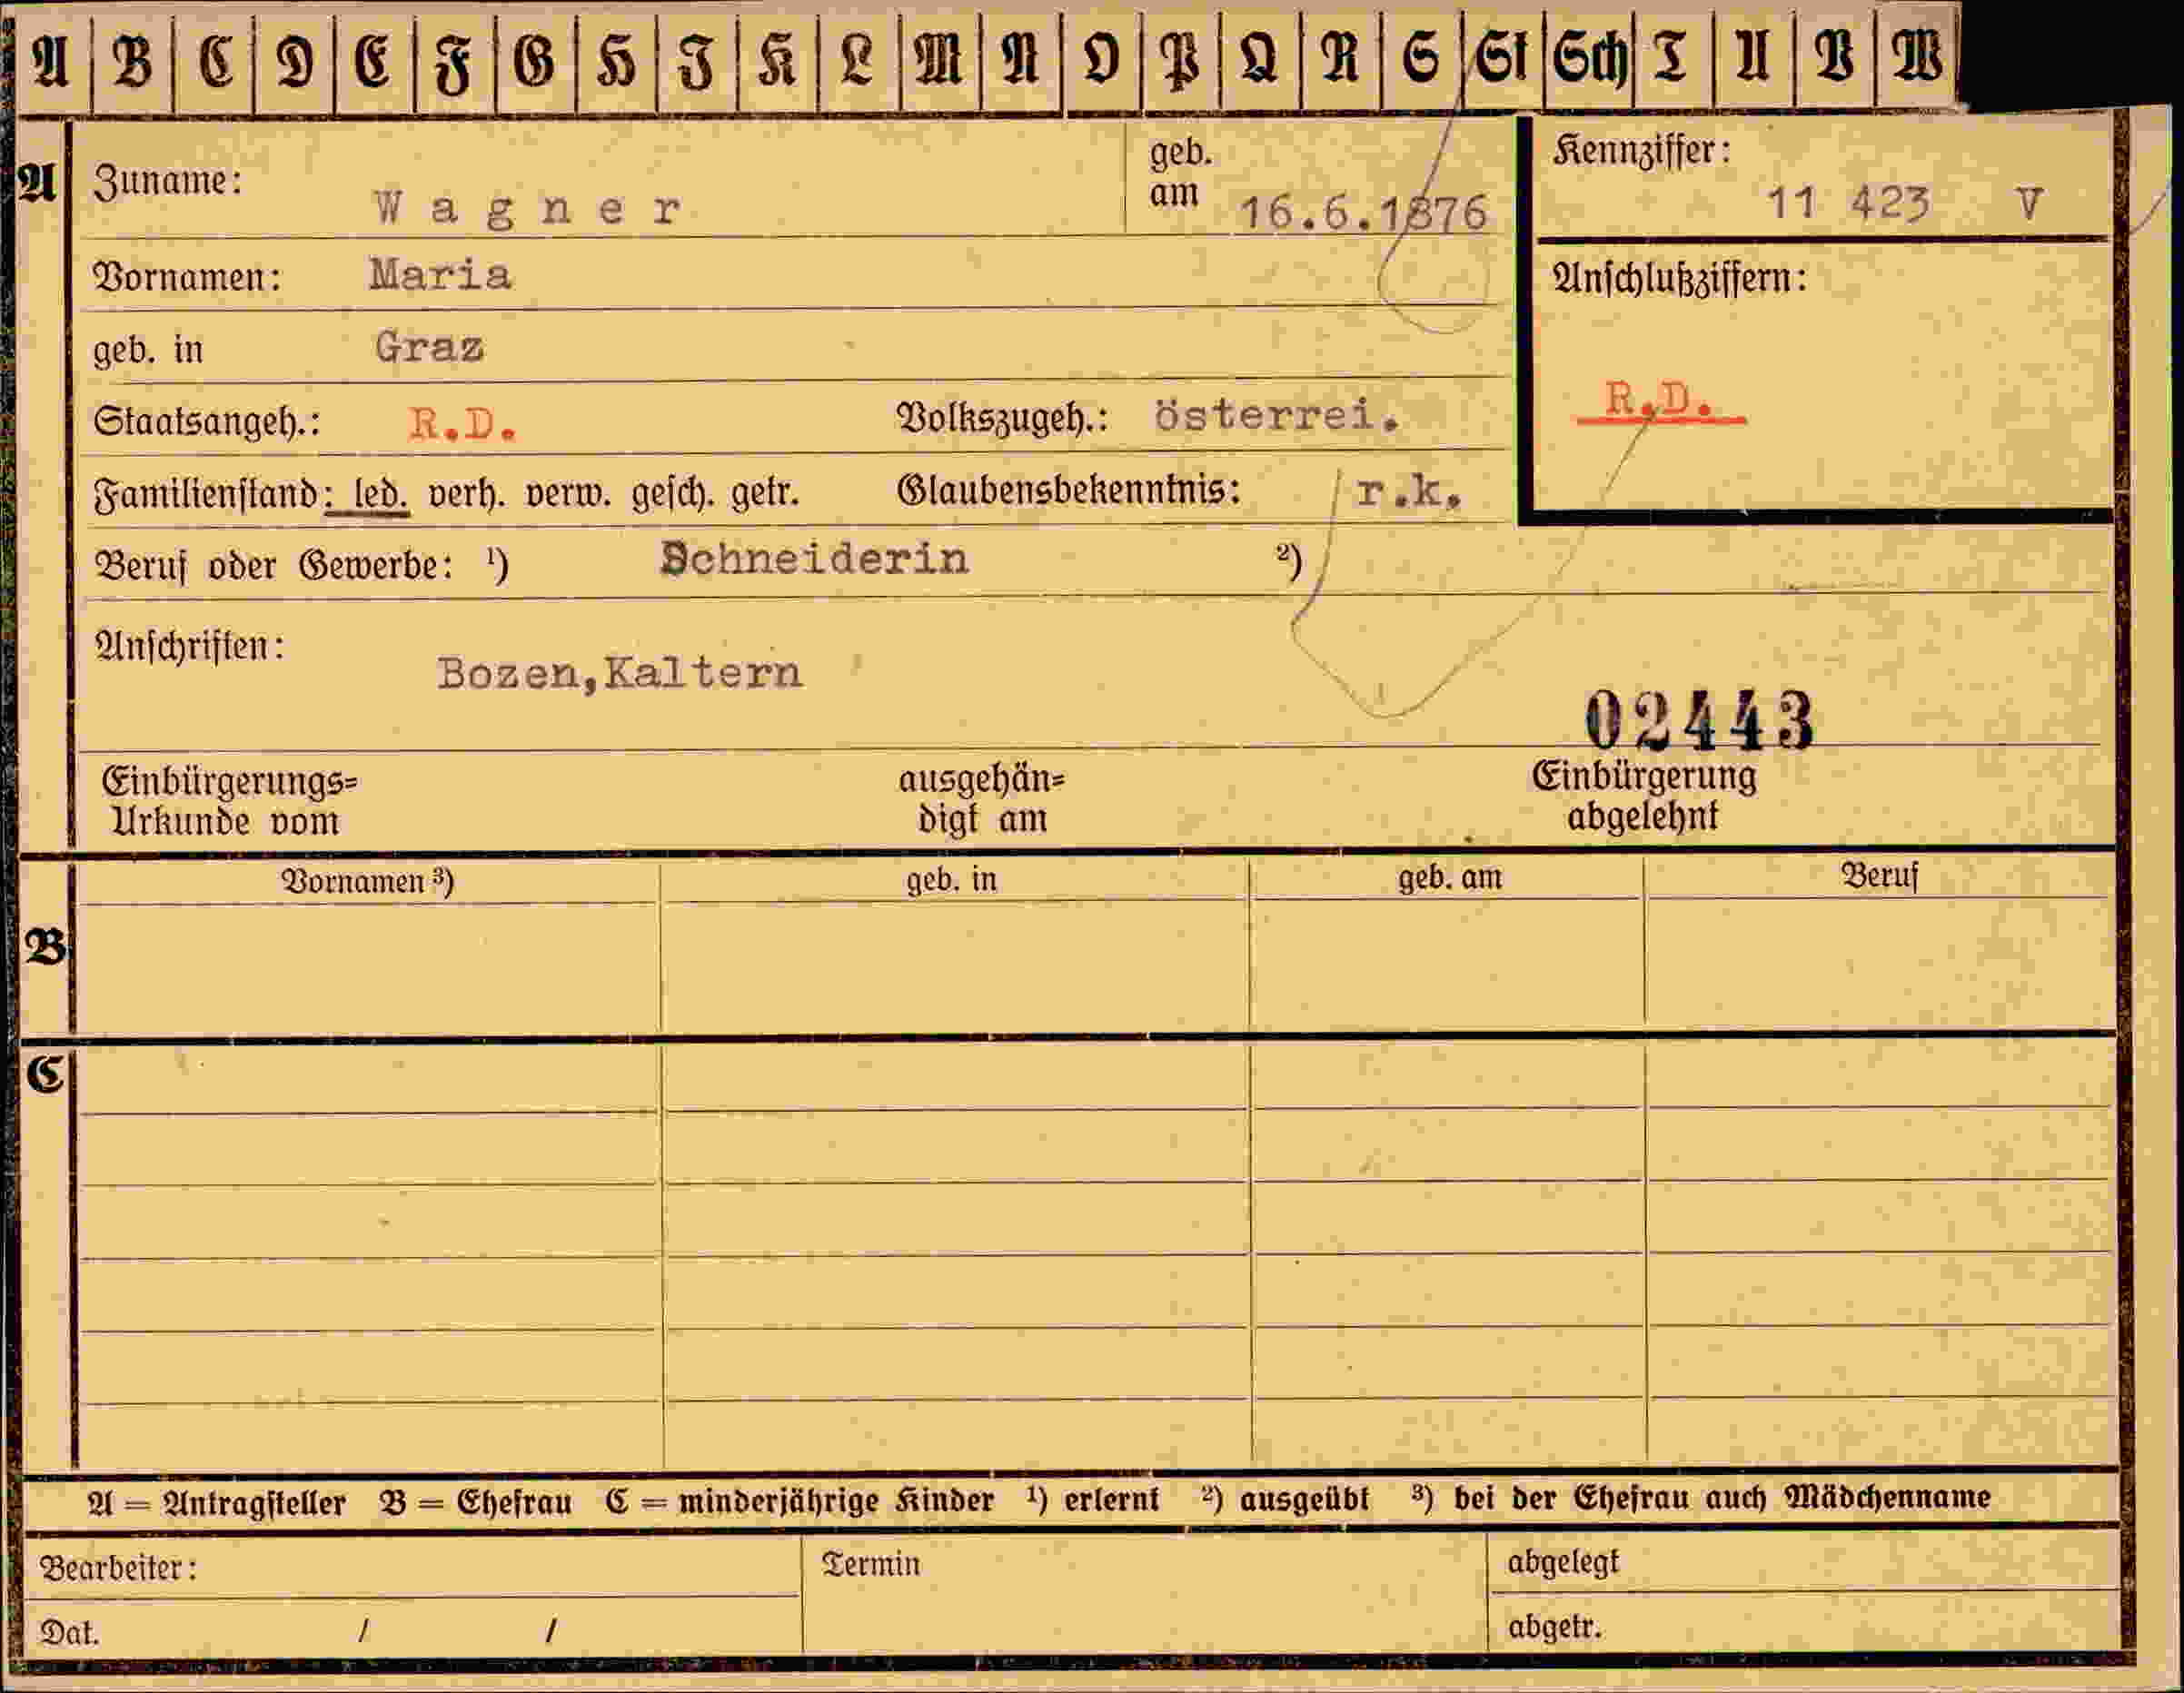 A B C D E F G H I K L M N O P Q R S St Sch T U V W
A Zuname: Wagner geb. am 16.6.1876 Kennziffer: 11 423 V
Vornamen: Maria Anschlußziffern:
geb. in Graz
R.D.
Staatsangeh.: R.D. Volkszugeh.: österrei.
Familienstand: led. verh. verw. gesch. getr. Glaubensbekenntnis: r.k.
Beruf oder Gewerbe: ¹) Schneiderin ²)
Anschriften: Bozen,Kaltern
02443
Einbürgerungs= ausgehän= Einbürgerung
Urkunde vom digt am abgelehnt
Vornamen ³) geb. in geb. am Beruf
B
C
A = Antragsteller B = Ehefrau C = minderjährige Kinder ¹) erlernt ²) ausgeübt ³) bei der Ehefrau auch Mädchenname
Bearbeiter: Termin abgelegt
Dat. / / abgetr.